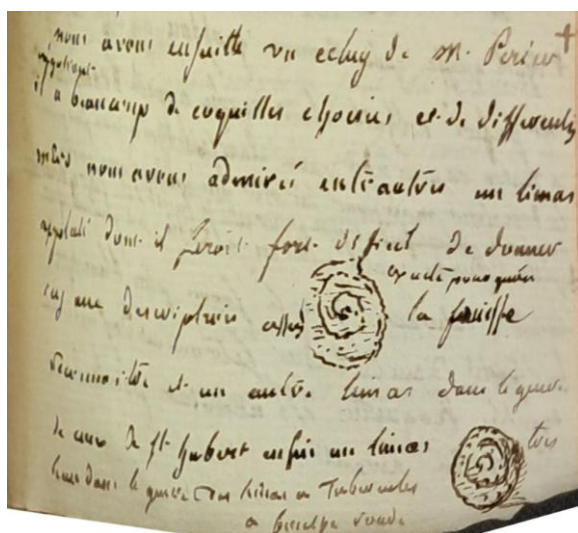 nous avons ensuitte vu celuy de M. Perier
il a beaucoup de coquilles choisies et de differentes
mers nous avons admiré entr'autres un limas
applati dont il seroit fort difficil de donner
icy une description assés exacte pour qu'on
la puisse
reconnoitre et un autre limas dans le genre
de ceux de St hubert enfin un limas très
beau dans le genre des limas a Tubercules
a bouche ronde